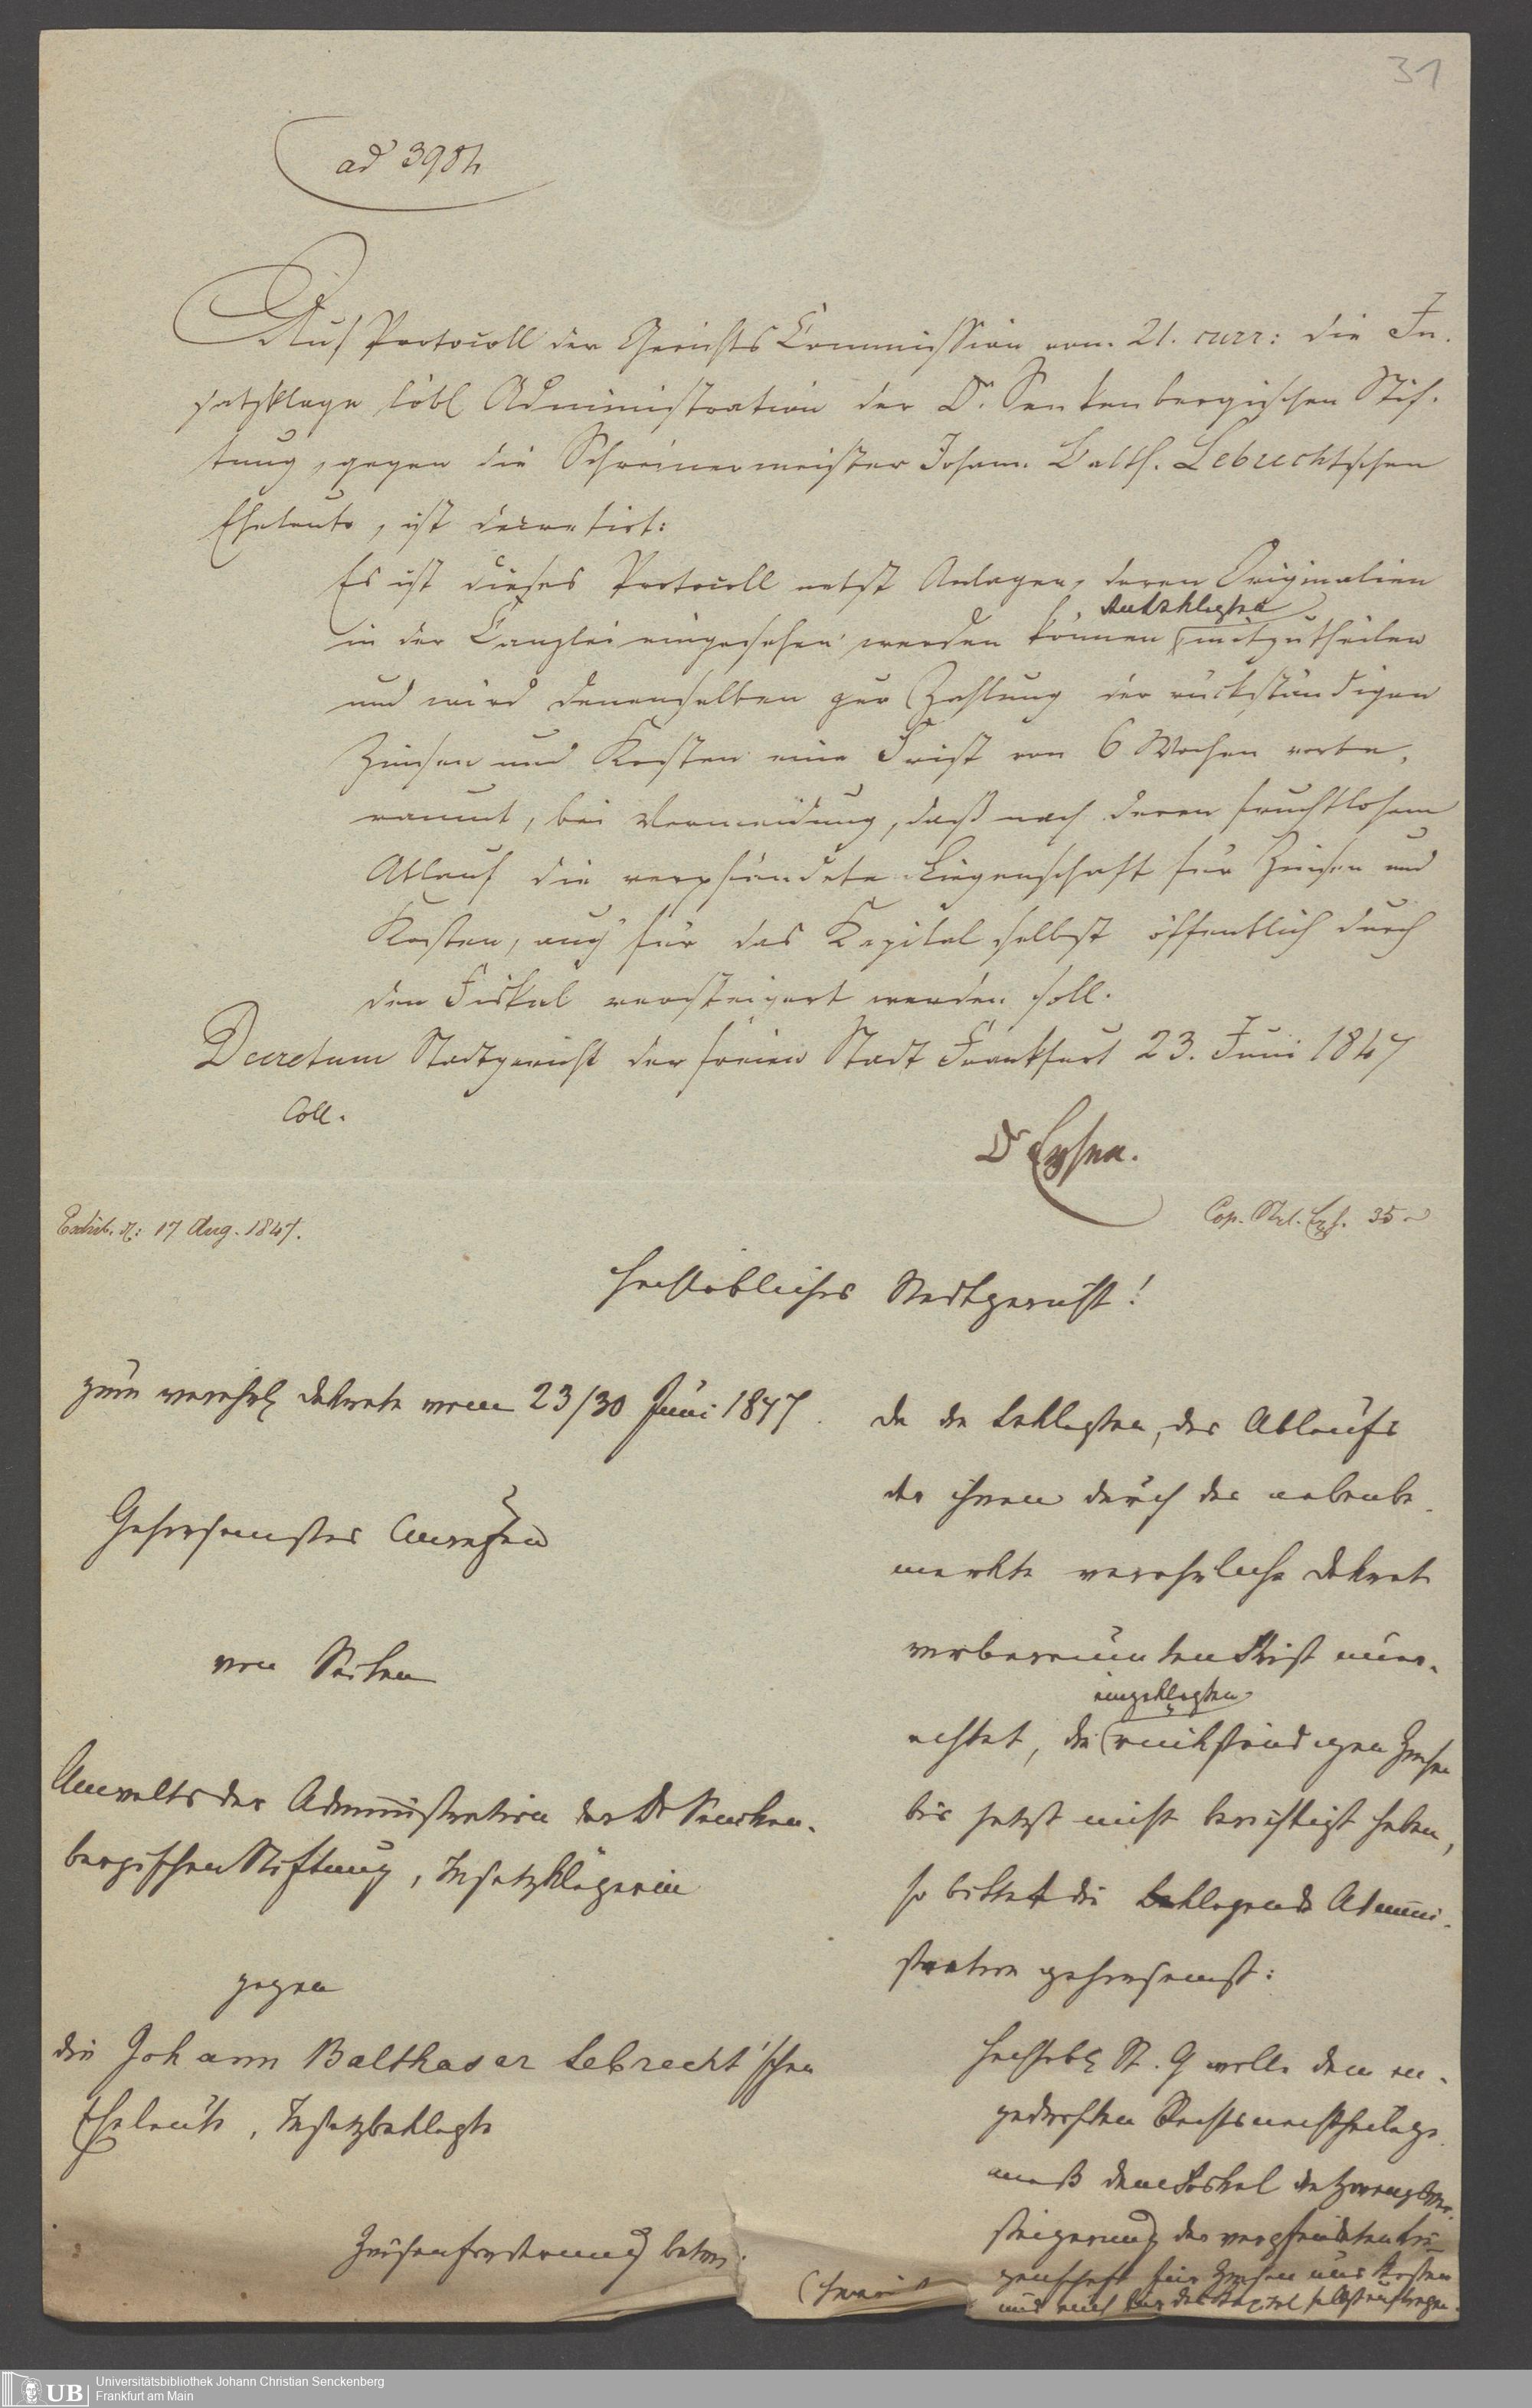 31
ad 3984
Auf Protocoll der Gerichts Commission vom 21. curr: die In-
satzklage löbl Administration der Dr. Senkenbergischen Stif-
tung, gegen die Schreinermeister Johann Balth. Lebrechtschen
Eheleute, ist decretirt:
Es ist dieses Protocoll nebst Anlagen, deren Originalien
Beklagten
in der Canzlei eingesehen werden können mitzutheilen
und wird denenselben zur Zahlung der rückständigen
Zinsen und Kosten eine Frist von 6 Wochen anbe-
raumt, bei Vermeidung, daß nach deren fruchtlosem
Ablauf die verpfändete Liegenschaft für Zinsen und
Kosten, auch für das Kapital selbst öffentlich durch
den Fiskal versteigert werden soll.
Decretum Stadtgericht der freien Stadt Frankfurt 23. Juni 1847
Coll.
Dr
Exhib. d: 17 Aug. 1847.
Cop. 35
Hochlöbliches Stadtgericht!
zum verehrl Dekrete vom 23/30 Juni 1847.
Gehorsamstes Anrufen
von Seiten
Anwalts der Administration der Dr Senken-
bergischen Stiftung, Insatzklägerin
gegen
die Johann Balthasar Lebrecht'schen
Eheleute, Insatzbeklagte
Zinsenforderung betr.
Da die Beklagten, des Ablaufs
der ihnen durch das nebenbe-
merkte verehrliche Dekret
anberaumten Frist uner-
eingeklagten
achtet, die rückständigen Zinsen
bis jetzt nicht berichtigt haben,
so bittet die klagende Admini-
stration gehorsamst:
Hochlöbl St. G wolle dem an-
gedrohten Rechtsnachtheilge-
mäß dem Fiskal die Zwangsver-
steigerung der verpfändeten Lie-
genschaft für Zinsen und Kosten
und auch für das Kapital selbst auftragen.